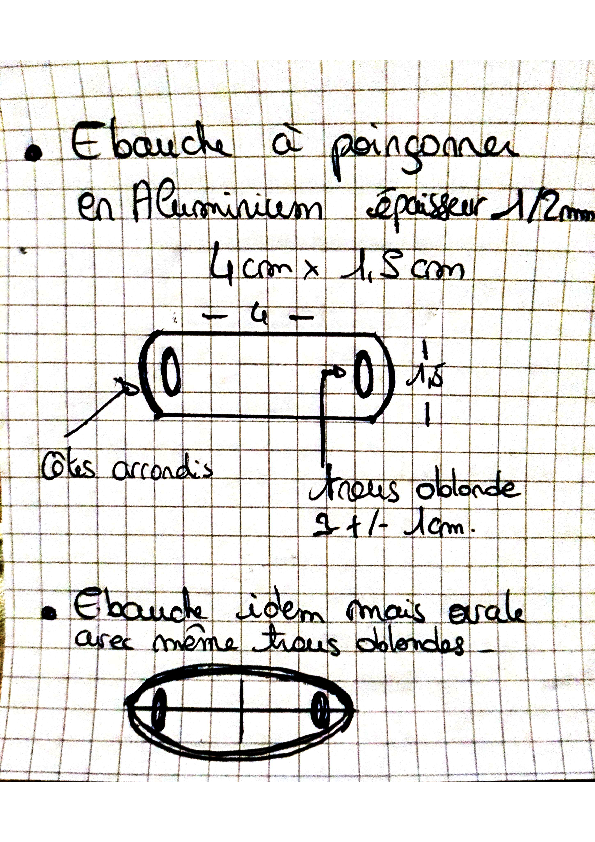 • Ebauche à poinçonner
en Aluminium épaisseur 1/2mm
4cm x 1,5cm
- 4 -
1,5
Côtés arrondis
trous oblonde
+/- 1cm.
• Ebauche idem mais ovale
avec même trous oblondes -